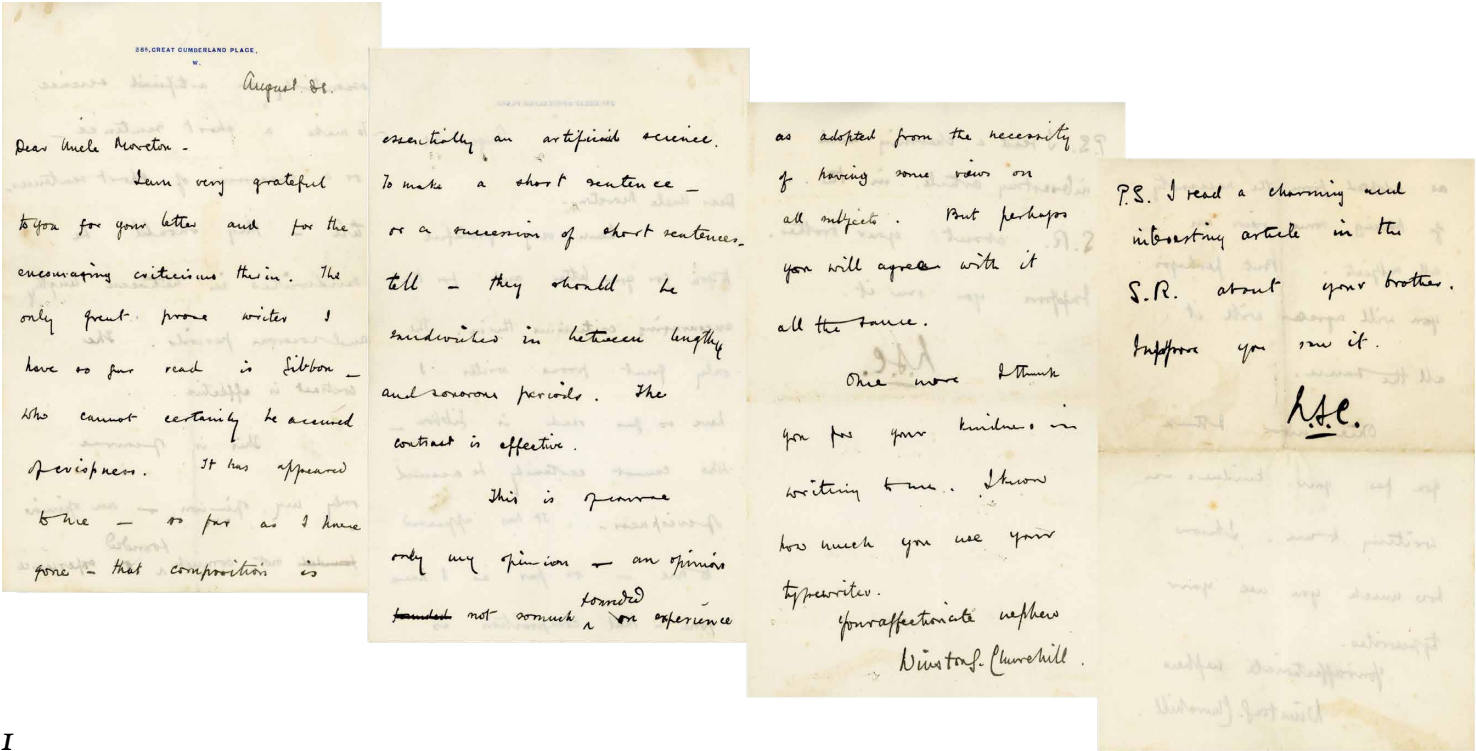 GREAT CUMBERLAND PLACE,
W.
August
Dear Uncle Moreton -
I am very grateful
to you for your letter and for the
encouraging criticisms therin. The
only great prose writer I
have so far read is Gibbon -
who cannot certainly be accused
of crispness. It has appeared
to me - so far as I have
gone - that composition is
essentially an artificial science.
To make a short sentence -
or a succession of short sentences -
tell - they should be
sandwiched in between lengthy
and sonorous periods. The
contrast is effective.
This is of course
only my opinion - an opinion
founded not so much founded on experience
as adopted from the necessity
of having some views on
all subjects. But perhaps
you will agree with it
all the same.
Once more I thank
you for your kindness in
writing to me. I know
how much you use your
typewriter.
Your affectionate nephew
Winston S. Churchill.
P.S. I read a charming and
interesting article in the
S.R. about your brother.
I suppose you saw it.
W.S.C.
I